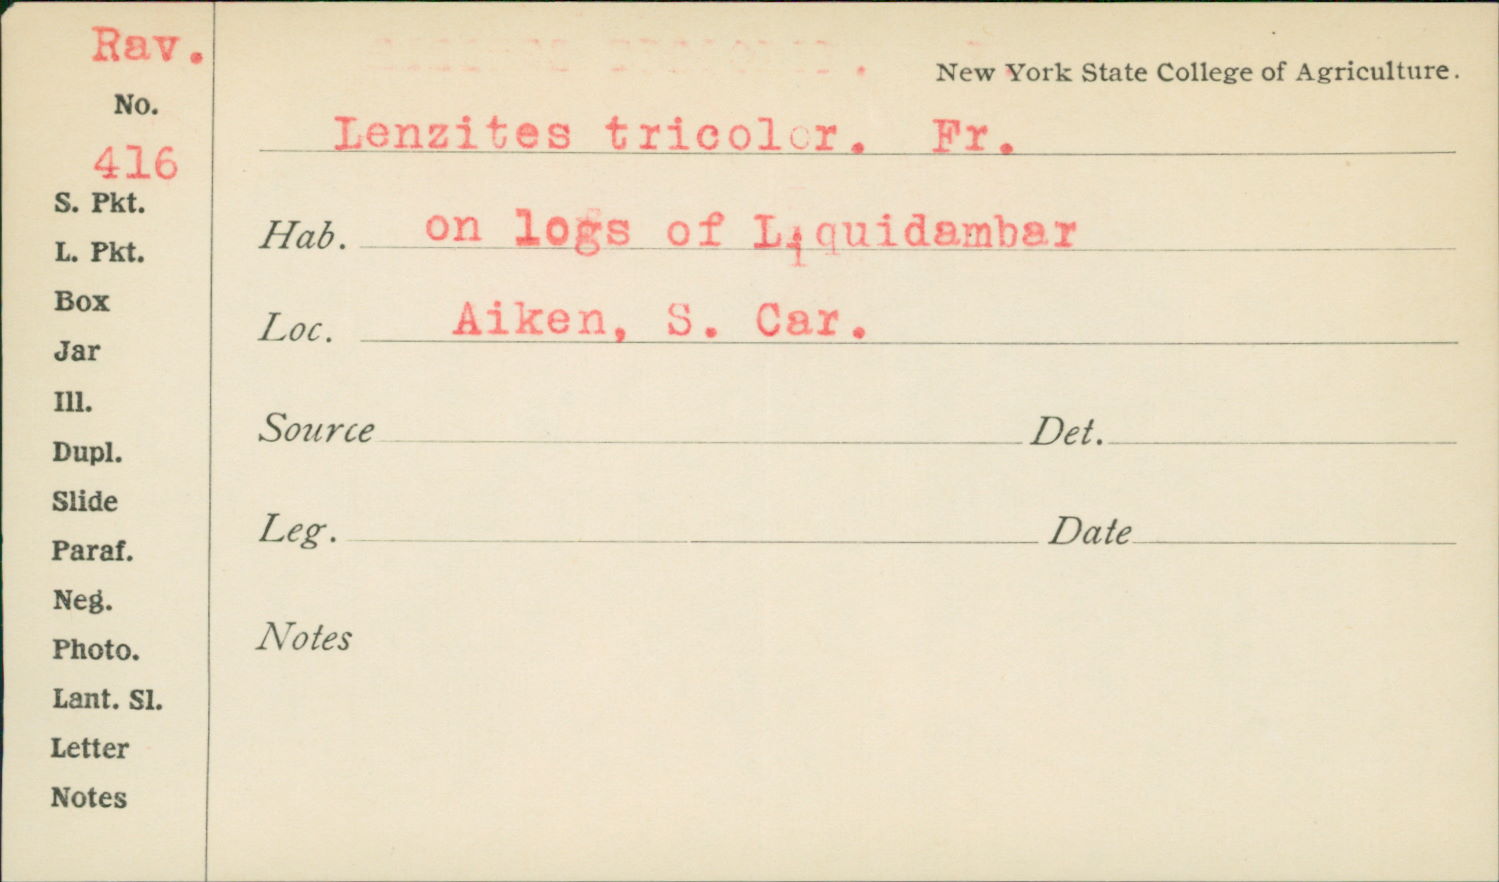 Rav.
New York State College of Agriculture.
No.
Lenzites tricolor. Fr.
416
S. Pkt.
Hab. on logs of Liquidambar
L. Pkt.
Box
Loc. Aiken, S. Car.
Jar
Ill.
Source Det.
Dupl.
Slide
Leg. Date
Paraf.
Neg.
Notes
Photo.
Lant. Sl.
Letter
Notes